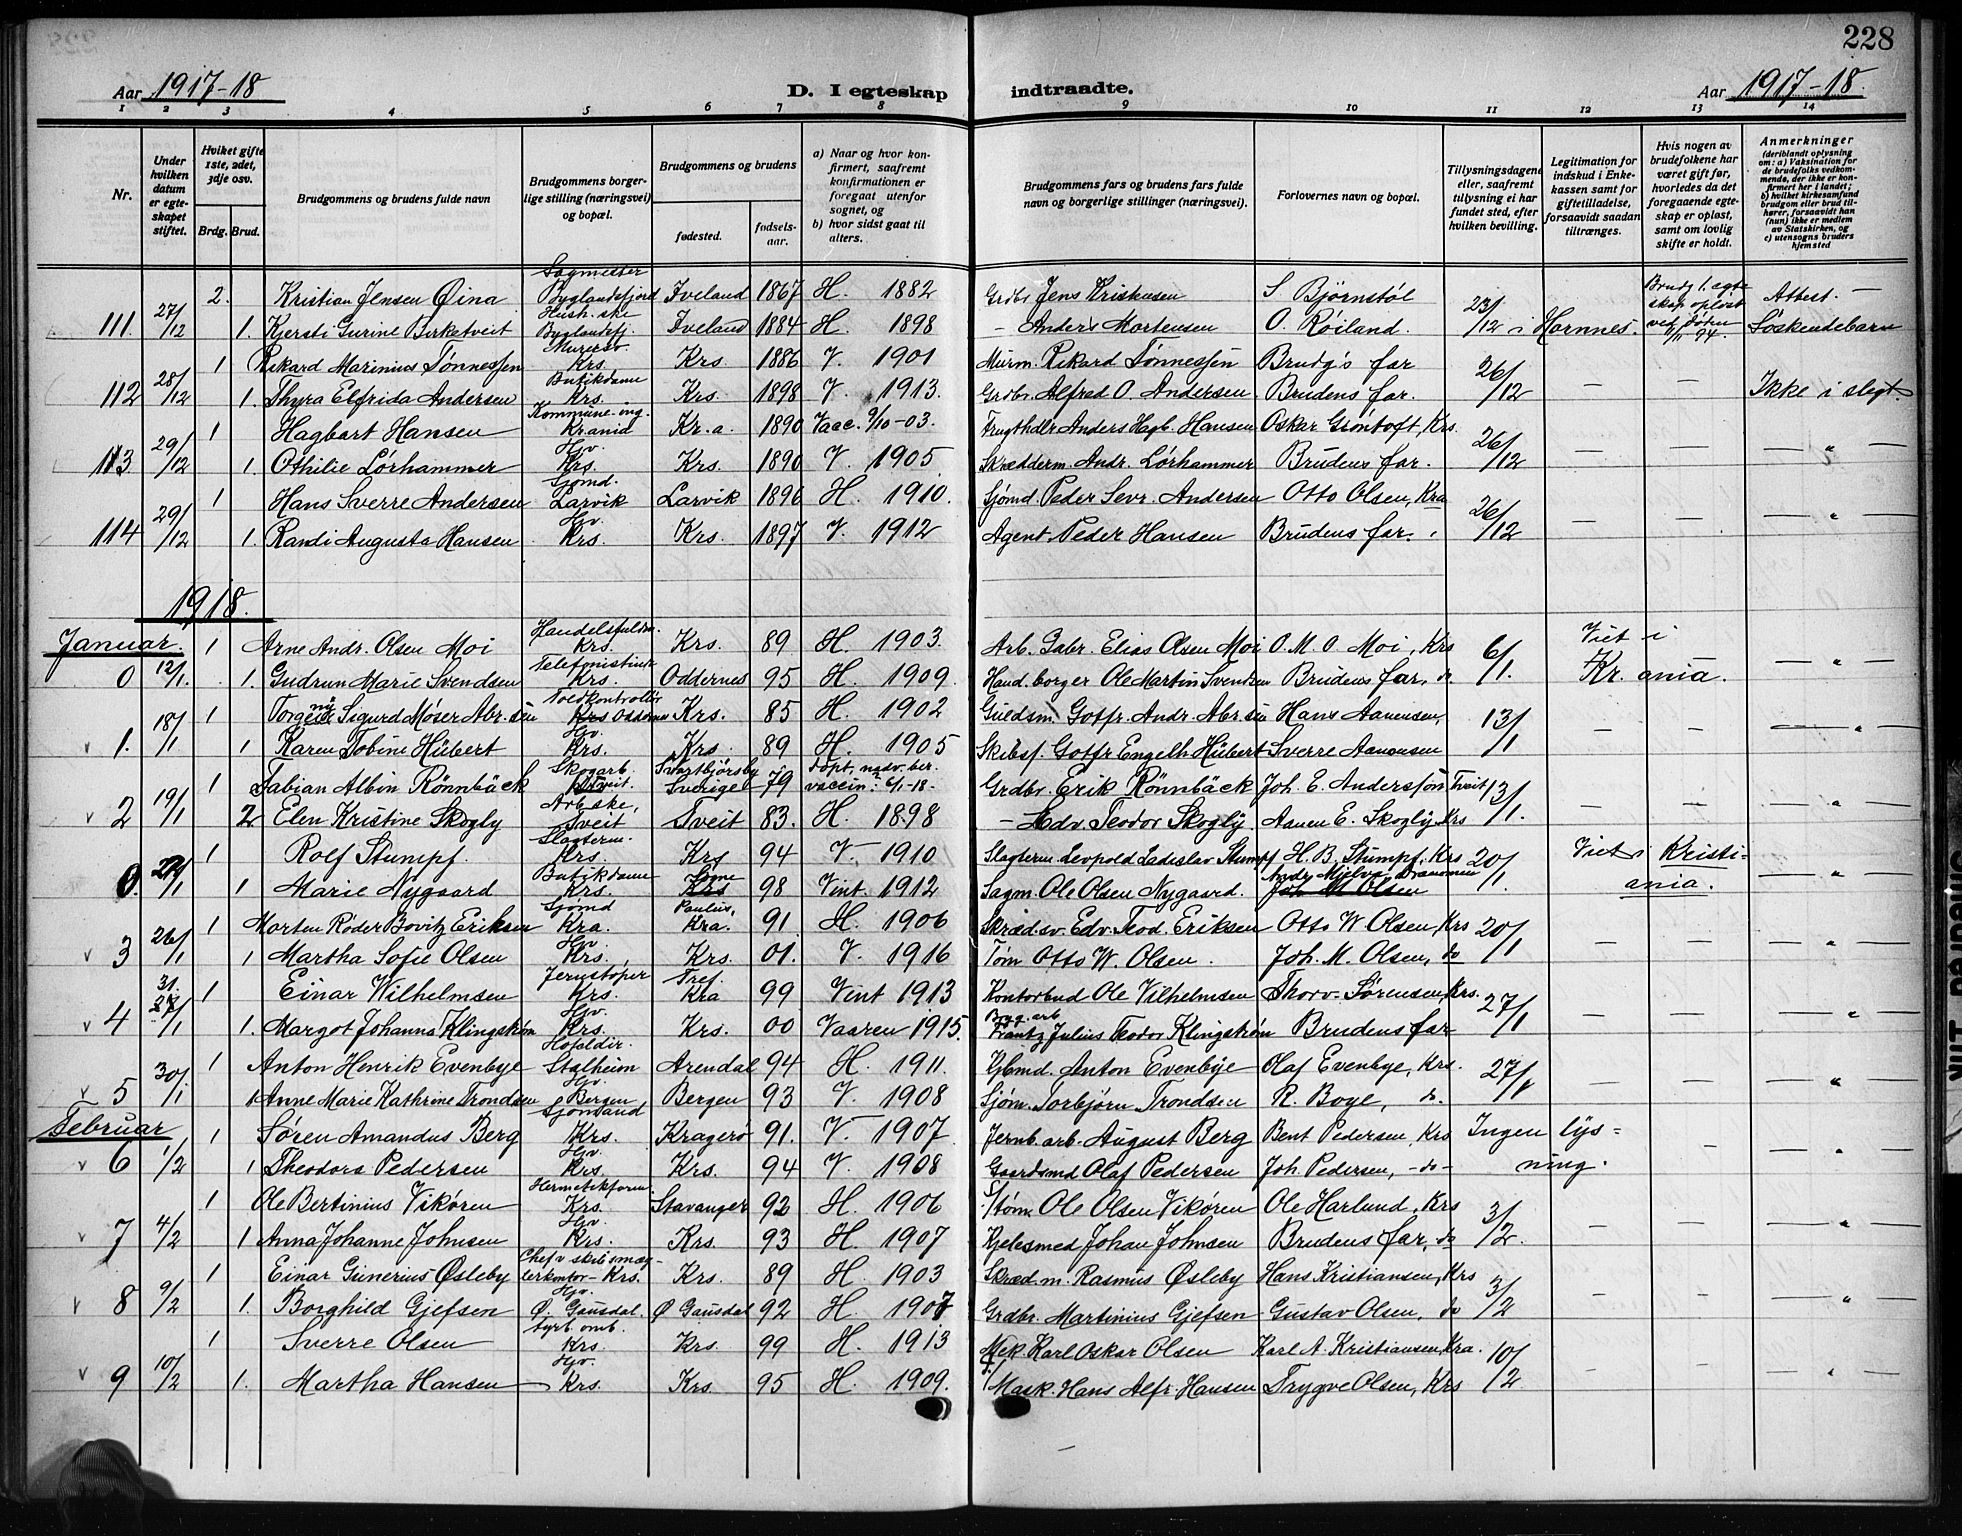 228
Aar 1917-18
D. I egteskap indtraadte.
Aar 1917-18.
1 2 3 4 5 6 7 8 9 10 11 12 13 14
Nr.
Under hvilken datum er egteskapet stiftet.
Hviket gifte 1ste, 2det, 3dje osv.
Brdg. Brud.
Brudgommens og brudens fulde navn
Brudgommens borgerlige stilling (næringsvei) og bopæl.
Brudgommens og brudens
fødested.
fødselsaar.
a) Naar og hvor konfirmert, saafremt konfirmationen er foregaat utenfor sognet, og
b) hvor sidst gaat til alters.
Brudgommens fars og brudens fars fulde navn og borgerlige stillinger (næringsvei).
Forlovernes navn og bopæl.
Tillysningsdagene eller, saafremt tillysning ei har fundet sted, efter hvilken bevilling.
Legitimation for indskud i Enkekassen samt for giftetilladelse, forsaavidt saadan tiltrænges.
Hvis nogen av brudefolkene har været gift før, hvorledes da det foregaaende egteskap er opløst, samt om lovlig skifte er holdt.
Anmerkninger (deriblandt oplysning om: a) Vaksination for de brudefolks vedkommende, der ikke er konfirmert her i landet; b) hvilket kirkesamfund brudgom eller brud tilhører, forsaavidt han (hun) ikke er medlem av Statskirken, og c) utensogns bruders hjemsted
2. Kristian Jensen Øina Sagmester Byglandsfjord Iveland 1867 H. 1882 Grdbr Jens Kristensen S Bjørnstøl 23/12 i Hornnes. Brudg 1. egteskap opløst ved døden Attest. —
111. 27/12 1. Kjersti Gurine Birketveit Hush. ske Byglandsfj. Iveland 1884 H. 1898 — Anders Mortensen O. Røiland. Søskendebarn
1 Rikard Marinius Tønnessen Murersv. Krs. Krs 1886 V. 1901 Murm. Rikard Tønnessen Brudg's far 26/12 — —
112 28/12 1. Thyra Elfrida Andersen Butikdame Krs. Krs. 1898 V. 1913. Grdbr. Alfred O. Andersen Brudens far. Ikke i slegt.
1 Hagbart Hansen Kommune-ing. Kr.a. 1890 Vacc. 9/10-03. Frugthdlr Anders Hagb. Hansen Oskar Gröntoft, Krs. 26/12 — — "
113 29/12 1. Othilie Lörhammer Hv. Krs. Krs. 1890 V. 1905 Skrædderm. Andr. Lörhammer Brudens far.
1 Hans Sverre Andersen Sjømd. Larvik Larvik 1896 H. 1910. Sjømd. Peder Sevr. Andersen Otto Olsen, Kra 26/12 — — "
114 29/12 1. Randi Augusta Hansen Hv. Krs. Krs. 1897 V. 1912 Agent Peder Hansen Brudens far.
1918.
Januar. 1 Arne Andr. Olsen Moi Krs. Krs. 89 H. 1903. Arb. Gabr. Elias Olsen Moi O. M. O Moi, Krs 6/1. Viet i Kr. ania. — "
0 12/1. 1. Gudrun Marie Svendsen Telefonistinde Krs. Oddernes 95 H. 1909. Hand. borger Ole Martin Svendsen Brudens far, do
1 Sigurd Móser Abr.sen Toldkontrollör Krs. 85 H. 1902 Guldsm. Gotfr. Andr. Abr.sen Hans Aanensen, 13/1 — — "
1. 18/1 1 Karen Tobine Hübert Hv. Krs. Krs. 89 H. 1905 Skibsf. Gotfr Engelh Hübert Sverre Aanensen
1 Fabian Albin Rönnbäck Skogarb. Tveit. Svartbjörsby Sverige 79 döpt, nadv. ber. vaccin: 6/1-18. Grdbr. Erik Rönnbäck Joh. E. Andersson Tveit 13/1. — — "
2 19/1 2 Elen Kristine Skogly Arb.ske, Tveit Tveit 83. H. 1898 — Edv. Teodor Skogly. Aanen E. Skogly Krs
1 Rolf Stumpf. Slagterm. Krs. Krs 94 V. 1910 Slagterm. Leopold Ladislav Stumpf H. B. Stumpf, Krs 20/1. Viet i Kristiania. — "
0. 1 Marie Nygaard Butikdame Krs. 98 Vint 1912 Sagm. Ole Olsen Nygaard. Joh M Olsen
1 Morten Röder Bovitz Eriksen Sjømd Kra. Paulus, Kra. 91. H. 1906 Skræd.sv. Edv. Teod. Eriksen Otto W Olsen, Krs 20/1 — — "
3 26/1 1 Martha Sofie Olsen Hv. Krs. Krs. 01. V. 1916 Tøm Otto W. Olsen. Joh. M. Olsen, do
1 Einar Wilhelmsen Jernstøper Krs. Tref. Kra 99 Vint 1913 Kontorbud Ole Vilhelmsen Thorv. Sörensen, Krs. 27/1 — — "
4 1. Margot Johanna Klingström Hv. Krs. Krs. 00 Vaaren 1915. Bygg. arb Frantz Julius Teodor Klingström Brudens far
1 Anton Henrik Evenbye Stalheim Arendal 94 H. 1911. Anton Evenbye Olaf Evenbye, Krs. 27/1 — — "
5 30/1. 1 Anne Marie Kathrine Trondsen Hv. Bergen Bergen 93 V. 1908 Sjøm. Torbjørn Trondsen R. Boye, do.
Februar 1 Søren Amandus Berg Krs. Kragerø 91. V. 1907 Jernb. arb. August Berg Bent Pedersen, Krs Ingen lysning. — "
6 1/2 1 Theodora Pedersen Hv. Krs. Krs. 94 V. 1908 Gaardsmd Olaf Pedersen Joh. Pedersen, -do-
1 Ole Bertinius Vikören Krs. Stavanger 92 H. 1906 Tøm. Ole Olsen Vikören Ole Harlund, Krs 3/2. — — "
7 4/2 1 Anna Johanne Johnsen Hv. Krs. Krs. 93 H. 1907 Kjelesmed Johan Johnsen Brudens far, do
1 Einar Gunerius Øsleby Chef v skibsmæglerkontor-Krs. Krs. 89 H. 1903 Skræd.m. Rasmus Øsleby Hans Kristiansen, Krs 3/2 — — "
8 9/2 1. Borghild Gjefsen Hv. Ø. Gausdal. Ø Gausdal 92 H. 1907 Grdbr. Martinius Gjefsen Gustav Olsen, do
1 Sverre Olsen Krs. Krs. 99 H. 1913 Mek. Karl Oskar Olsen Karl A. Kristiansen, Kra. 10/2 — — "
9 10/2 1. Martha Hansen Hv. Krs. Krs. 95 H. 1909. Mask. Hans Alfr. Hansen Trygve Olsen, Krs